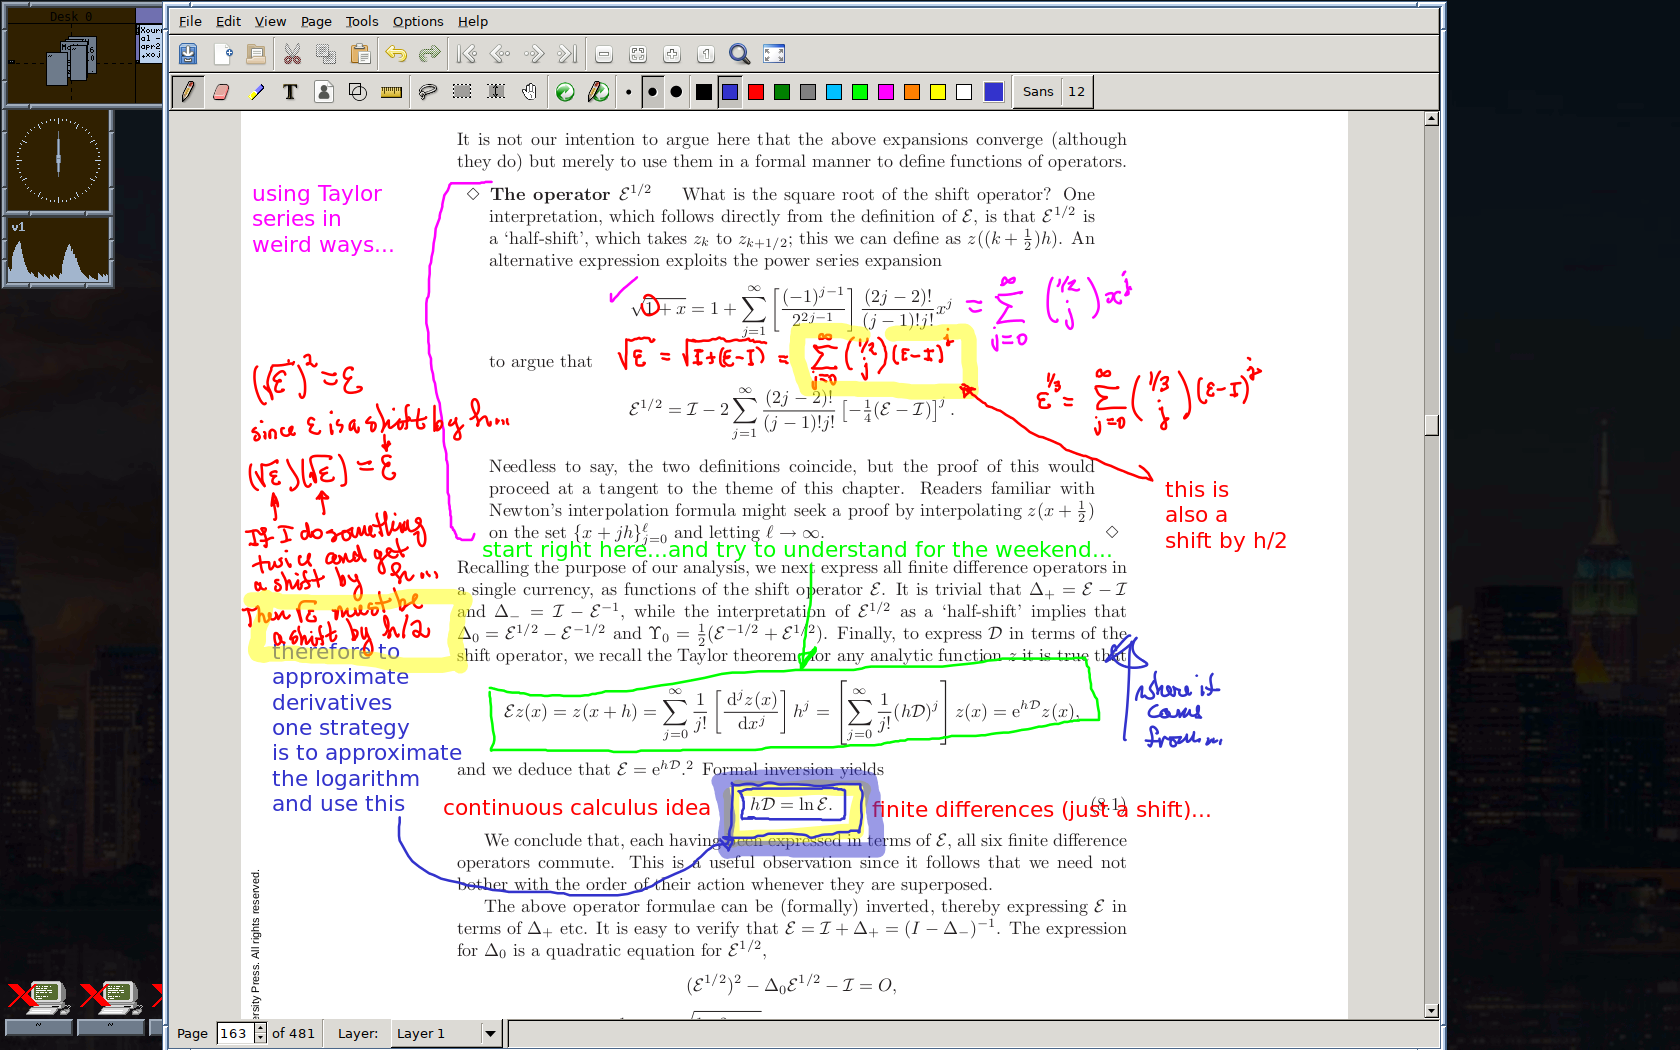 Desk 0
Xour
al -
apr2
.xoj
v1
File Edit View Page Tools Options Help
Sans 12
It is not our intention to argue here that the above expansions converge (although
they do) but merely to use them in a formal manner to define functions of operators.
using Taylor
series in
weird ways...
◇ The operator ℰ^{1/2} What is the square root of the shift operator? One
interpretation, which follows directly from the definition of ℰ, is that ℰ^{1/2} is
a ‘half-shift’, which takes z_k to z_{k+1/2}; this we can define as z((k + 1/2)h). An
alternative expression exploits the power series expansion
√(1 + x) = 1 + ∑_{j=1}^{∞} [(-1)^{j-1}/2^{2j-1}] (2j − 2)!/((j − 1)!j!) x^j = ∑_{j=0}^{∞} (1/2 j) x^j
to argue that √ℰ = √(I+(ℰ-I)) = ∑_{j=0}^{∞} (1/2 j) (ℰ-I)^j
ℰ^{1/2} = ℐ − 2 ∑_{j=1}^{∞} (2j − 2)!/((j − 1)!j!) [−1/4(ℰ − ℐ)]^j.
ℰ^{1/3} = ∑_{j=0}^{∞} (1/3 j) (ℰ-I)^j
(√ℰ)² = ℰ
since ℰ is a shift by h...
(√ℰ)(√ℰ) = ℰ
If I do something
twice and get
a shift by h...
Then √ℰ must be
a shift by h/2
Needless to say, the two definitions coincide, but the proof of this would
proceed at a tangent to the theme of this chapter. Readers familiar with
Newton's interpolation formula might seek a proof by interpolating z(x + 1/2)
on the set {x + jh}_{j=0}^{ℓ} and letting ℓ → ∞. ◇
this is
also a
shift by h/2
start right here...and try to understand for the weekend...
Recalling the purpose of our analysis, we next express all finite difference operators in
a single currency, as functions of the shift operator ℰ. It is trivial that Δ₊ = ℰ − ℐ
and Δ₋ = ℐ − ℰ^{−1}, while the interpretation of ℰ^{1/2} as a ‘half-shift’ implies that
Δ₀ = ℰ^{1/2} − ℰ^{−1/2} and ϒ₀ = 1/2(ℰ^{−1/2} + ℰ^{1/2}). Finally, to express 𝒟 in terms of the
shift operator, we recall the Taylor theorem: for any analytic function z it is true that
ℰz(x) = z(x + h) = ∑_{j=0}^{∞} 1/j! [d^j z(x)/dx^j] h^j = [∑_{j=0}^{∞} 1/j! (h𝒟)^j] z(x) = e^{h𝒟}z(x),
where it
comes
from...
therefore to
approximate
derivatives
one strategy
is to approximate
the logarithm
and use this
and we deduce that ℰ = e^{h𝒟}.² Formal inversion yields
continuous calculus idea
h𝒟 = ln ℰ.
(8.1)
finite differences (just a shift)...
We conclude that, each having been expressed in terms of ℰ, all six finite difference
operators commute. This is a useful observation since it follows that we need not
bother with the order of their action whenever they are superposed.
The above operator formulae can be (formally) inverted, thereby expressing ℰ in
terms of Δ₊ etc. It is easy to verify that ℰ = ℐ + Δ₊ = (I − Δ₋)^{−1}. The expression
for Δ₀ is a quadratic equation for ℰ^{1/2},
(ℰ^{1/2})² − Δ₀ℰ^{1/2} − ℐ = O,
ersity Press. All rights reserved.
Page 163 of 481 Layer: Layer 1